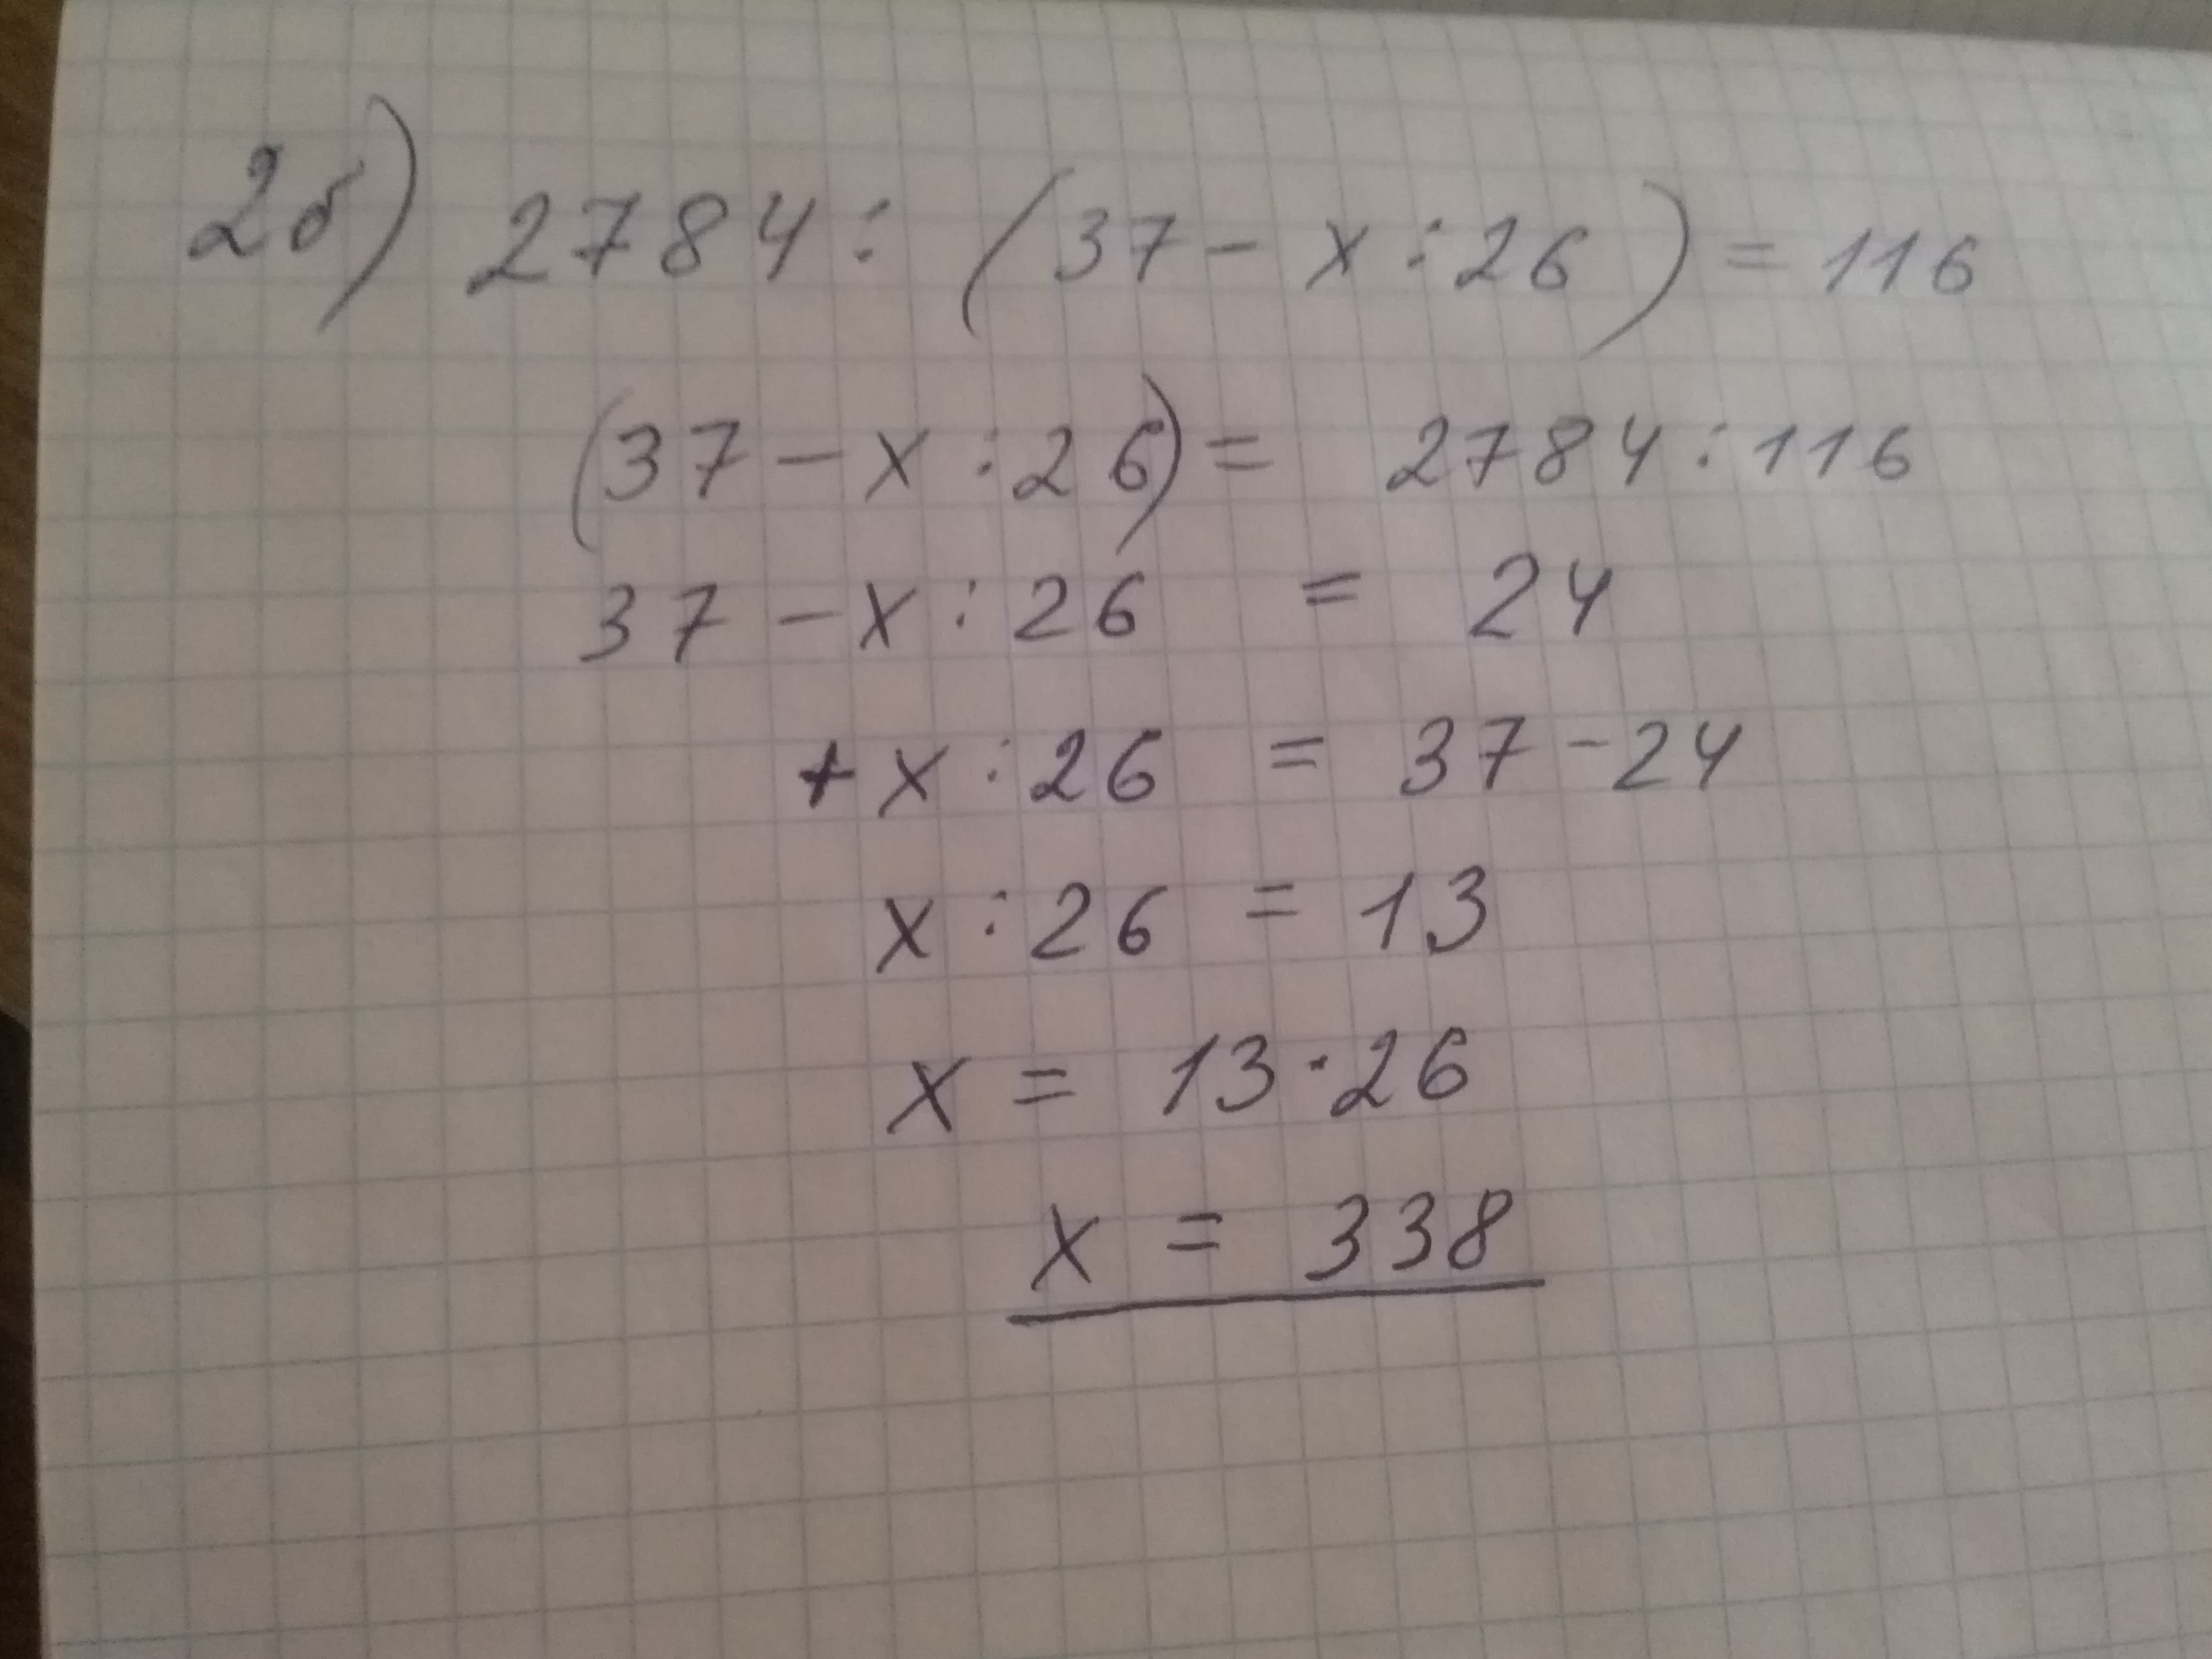 2б) 2784 : (37 - x : 26) = 116
(37 - x : 26) = 2784 : 116
37 - x : 26 = 24
+ x : 26 = 37 - 24
x : 26 = 13
x = 13 · 26
x = 338